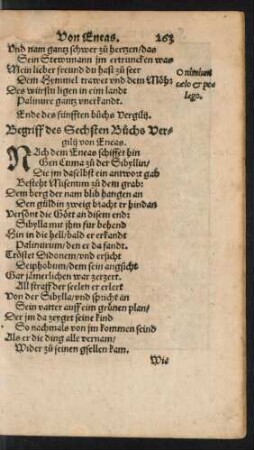 Von Eneas. 263
Vnd nam gantz schwer zu hertzen/das
Sein Stewrmann jm ertruncken was
Mein lieber freund du hast zu seer
Dem Hymmel trawet vnd dem Möhr
O nimium
cælo & pe-
lago.
Des würstu ligen in eim landt
Palinure gantz vnerkandt.
Ende des fünfften büchs Vergilij.
Begriff des Sechsten Büchs Ver-
gilij von Eneas.
NAch dem Eneas schiffet hin
Gen Cuma zů der Sibyllin/
Die jm daselbst ein antwort gab
Besteht Misenum zů dem grab:
Dem berg der nam blib hangen an
Den güldin zweig bracht er hindan
Versönt die Gött an disem end:
Sibylla mit jhm fur behend
Hin in die hell/bald er erkandt
Palinurum/den er da fandt.
Tröstet Didonem/vnd ersicht
Deiphobum/dem sein angsicht
Gar jämerlichen war zerzert.
All straff der seelen er erlert
Von der Sibylla/vnd spricht an
Sein vatter auff eim grünen plan/
Der jm da zeyget seine kind
So nachmals von jm kommen seind
Als er die ding alle vernam/
Wider zů seinen gsellen kam.
Wie